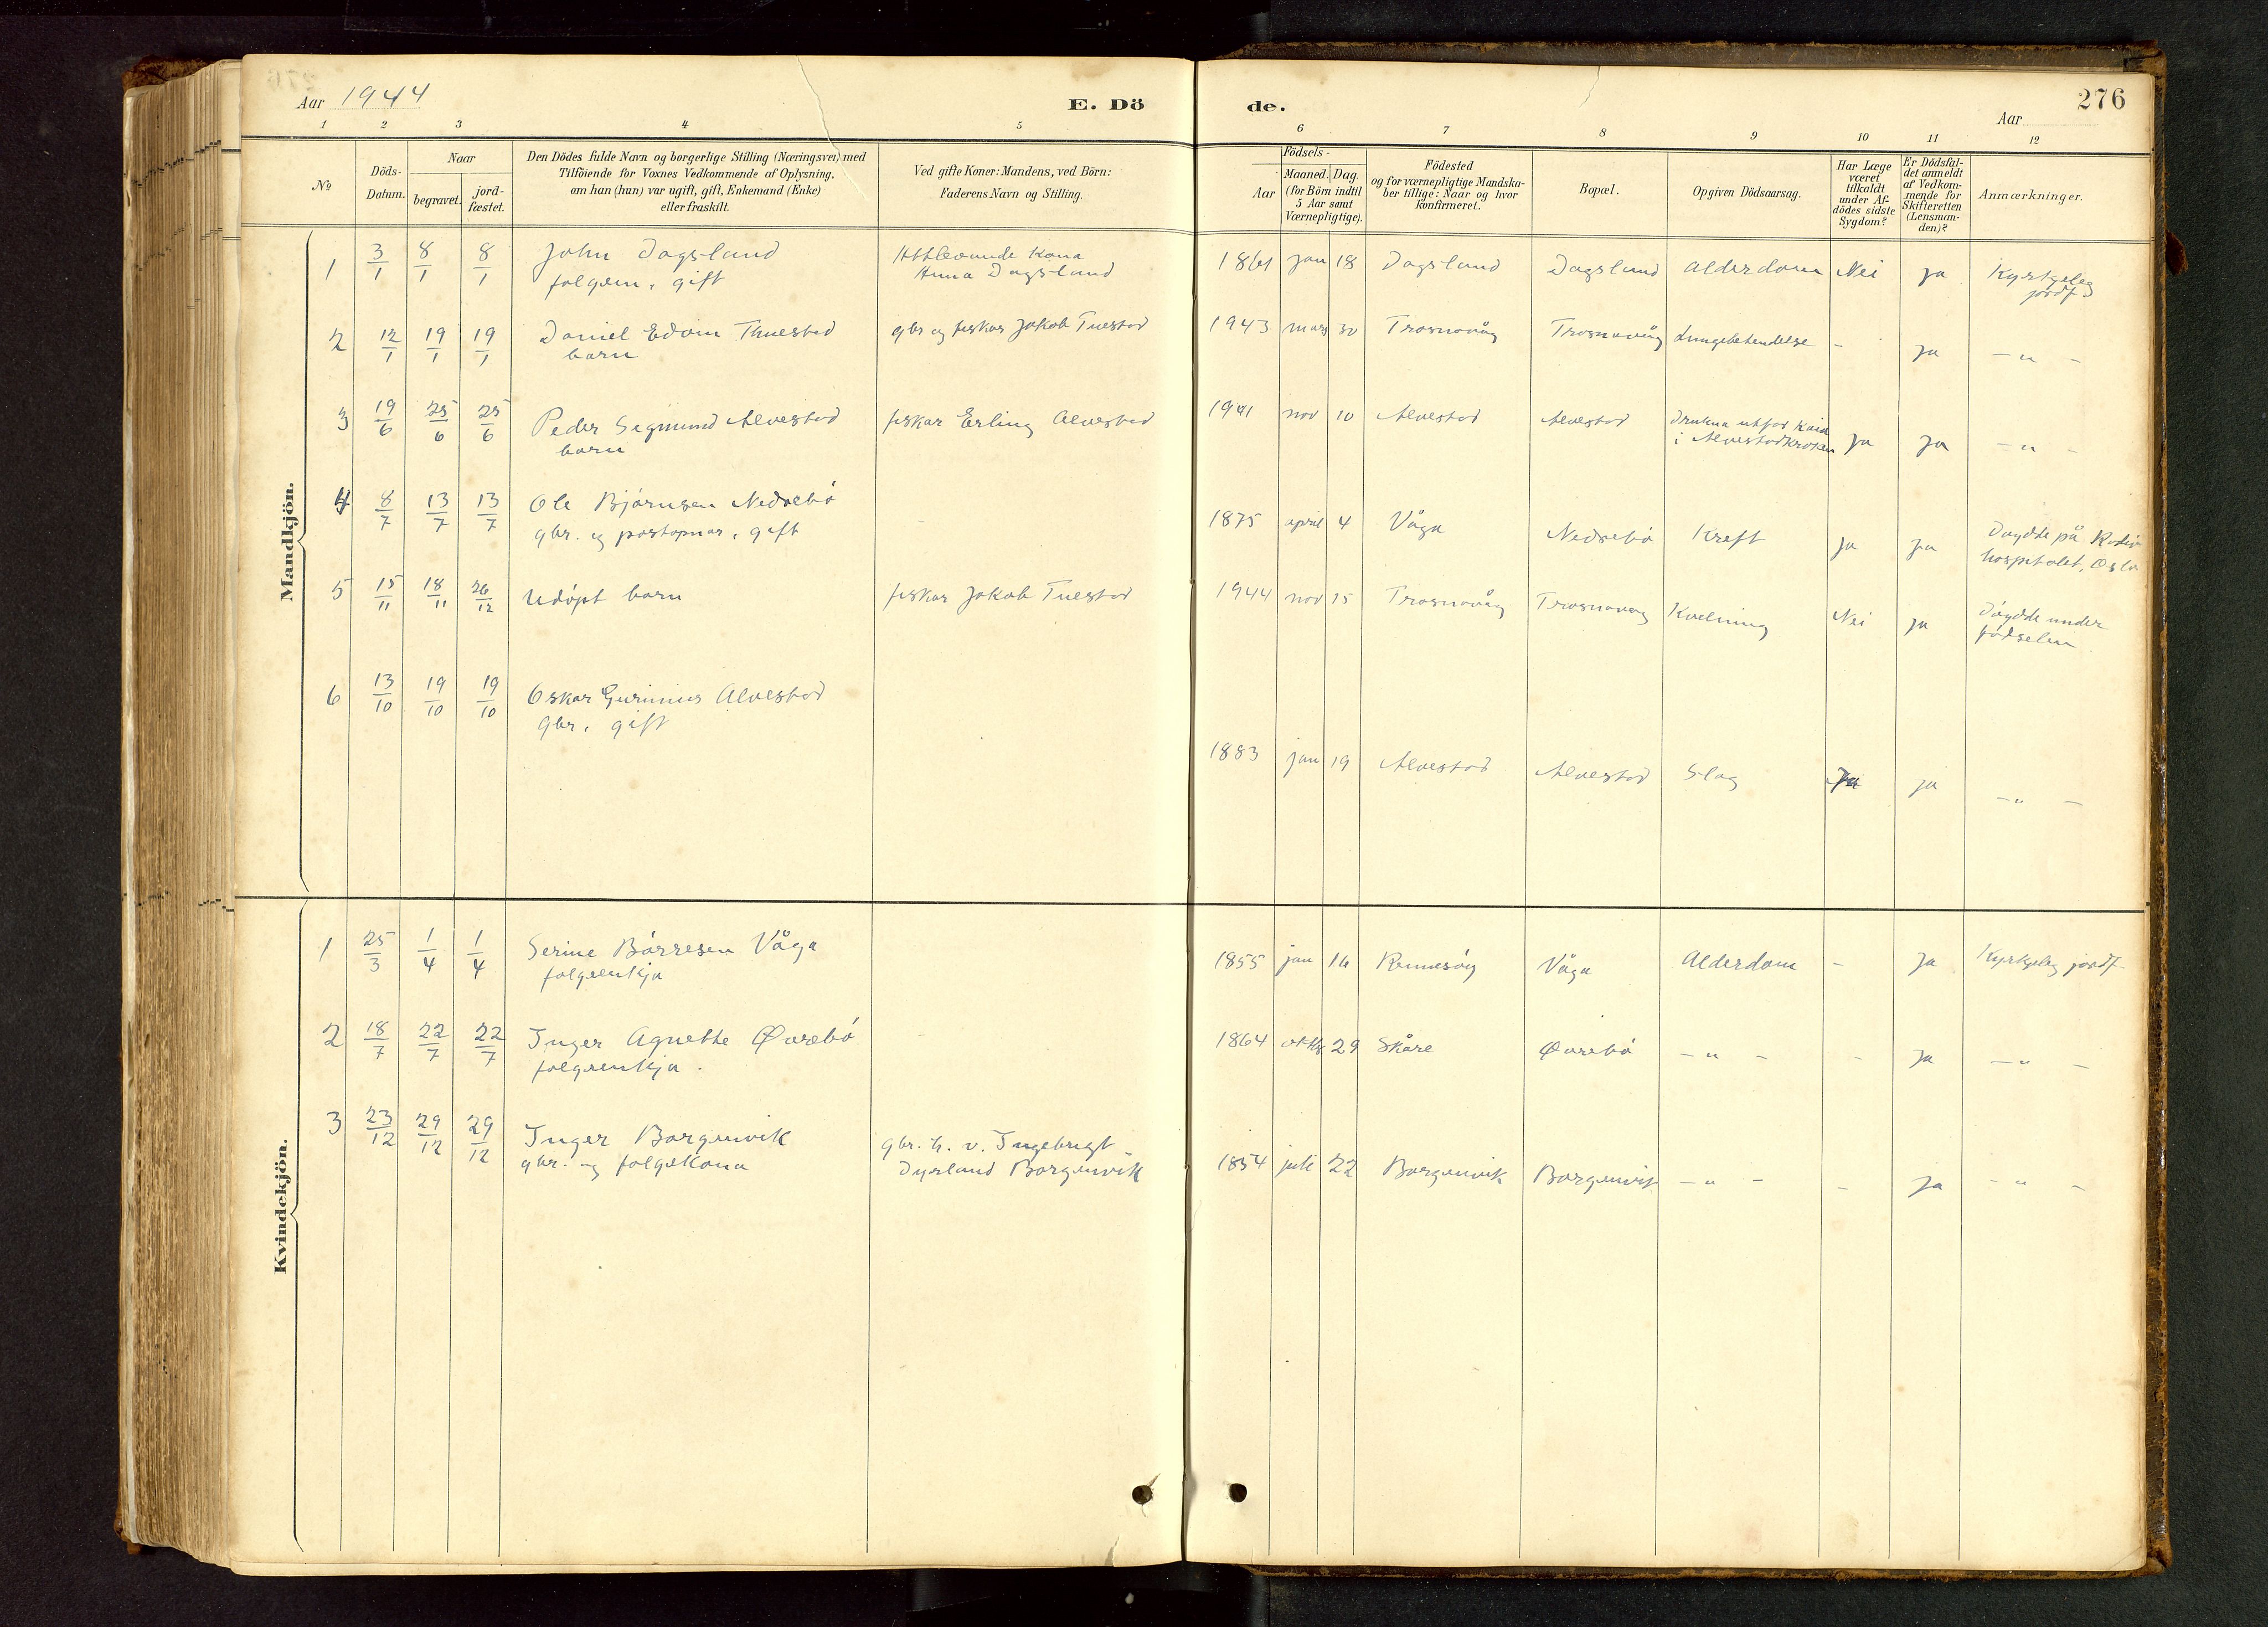 Aar 1944
E. Dö
de.
Aar
276
1 2 3 4 5 6 7 8 9 10 11 12
No
Döds-Datum.
Naar
begravet.
jord-fæstet.
Den Dödes fulde Navn og borgerlige Stilling (Næringsvei) med
Tilföiende for Voxnes Vedkommende af Oplysning,
om han (hun) var ugift, gift, Enkemand (Enke)
eller fraskilt.
Ved gifte Koner: Mandens, ved Börn:
Faderens Navn og Stilling.
Födsels-
Aar
Maaned. Dag.
(for Börn indtil
5 Aar samt
Værnepligtige).
Födested
og for værnepligtige Mandska-
ber tillige: Naar og hvor
konfirmeret.
Bopæl.
Opgiven Dödsaarsag.
Har Læge
været
tilkaldt
under Af-
dödes sidste
Sygdom?
Er Dödsfal-
det anmeldt
af Vedkom-
mende for
Skifteretten
(Lensman-
den)?
Anmærkninger.
Mandkjön.
1 3/1 8/1 8/1 John Dagsland Attlevande kona 1861 jan 18 Dagsland Dagsland Alderdom Nei ja Kyrkjeleg
folgem. gift Anna Dagsland jordf
2 12/1 19/1 19/1 Daniel Edom Thuestad gbr og fiskar Jakob Tuestad 1943 mars 30 Trosnavåg Trosnavåg Lungebetendelse - ja - " -
barn
3 19/6 25/6 25/6 Peder Sigmund Alvestad fiskar Erling Alvestad 1941 nov 10 Alvestad Alvestad Drukna utfor kaia ja ja - " -
barn i Alvestadkroken
4 8/7 13/7 13/7 Ole Bjørnsen Nedrebø - 1875 april 4 Våga Nedrebø Kreft ja ja Døydde på Radium
gbr. og postopnar, gift hospitalet, Oslo
5 15/11 18/11 26/12 Udøpt barn fiskar Jakob Tuestad 1944 nov 15 Trosnavåg Trosnavåg Kvelning Nei ja Døydde under
fødselen.
6 13/10 19/10 19/10 Oskar Gurinius Alvestad 1883 jan 19 Alvestad Alvestad Slag Ja ja - " -
gbr. gift
Kvindekjön.
1 25/3 1/4 1/4 Serine Børresen Våga 1855 jan 16 Rennesøy Våga Alderdom - Ja Kyrkjeleg jordf
folgeenkja
2 18/7 22/7 22/7 Inger Agnethe Øvrebø - 1864 29 Skåre Øvrebø - " - - Ja - " -
folgeenkja.
3 23/12 29/12 29/12 Inger Borgenvik gbr. h. v. Ingebrigt 1854 juli 22 Borgenvik Borgenvik - " - - Ja - " -
gbr. og folgekona Dyrland Borgenvik